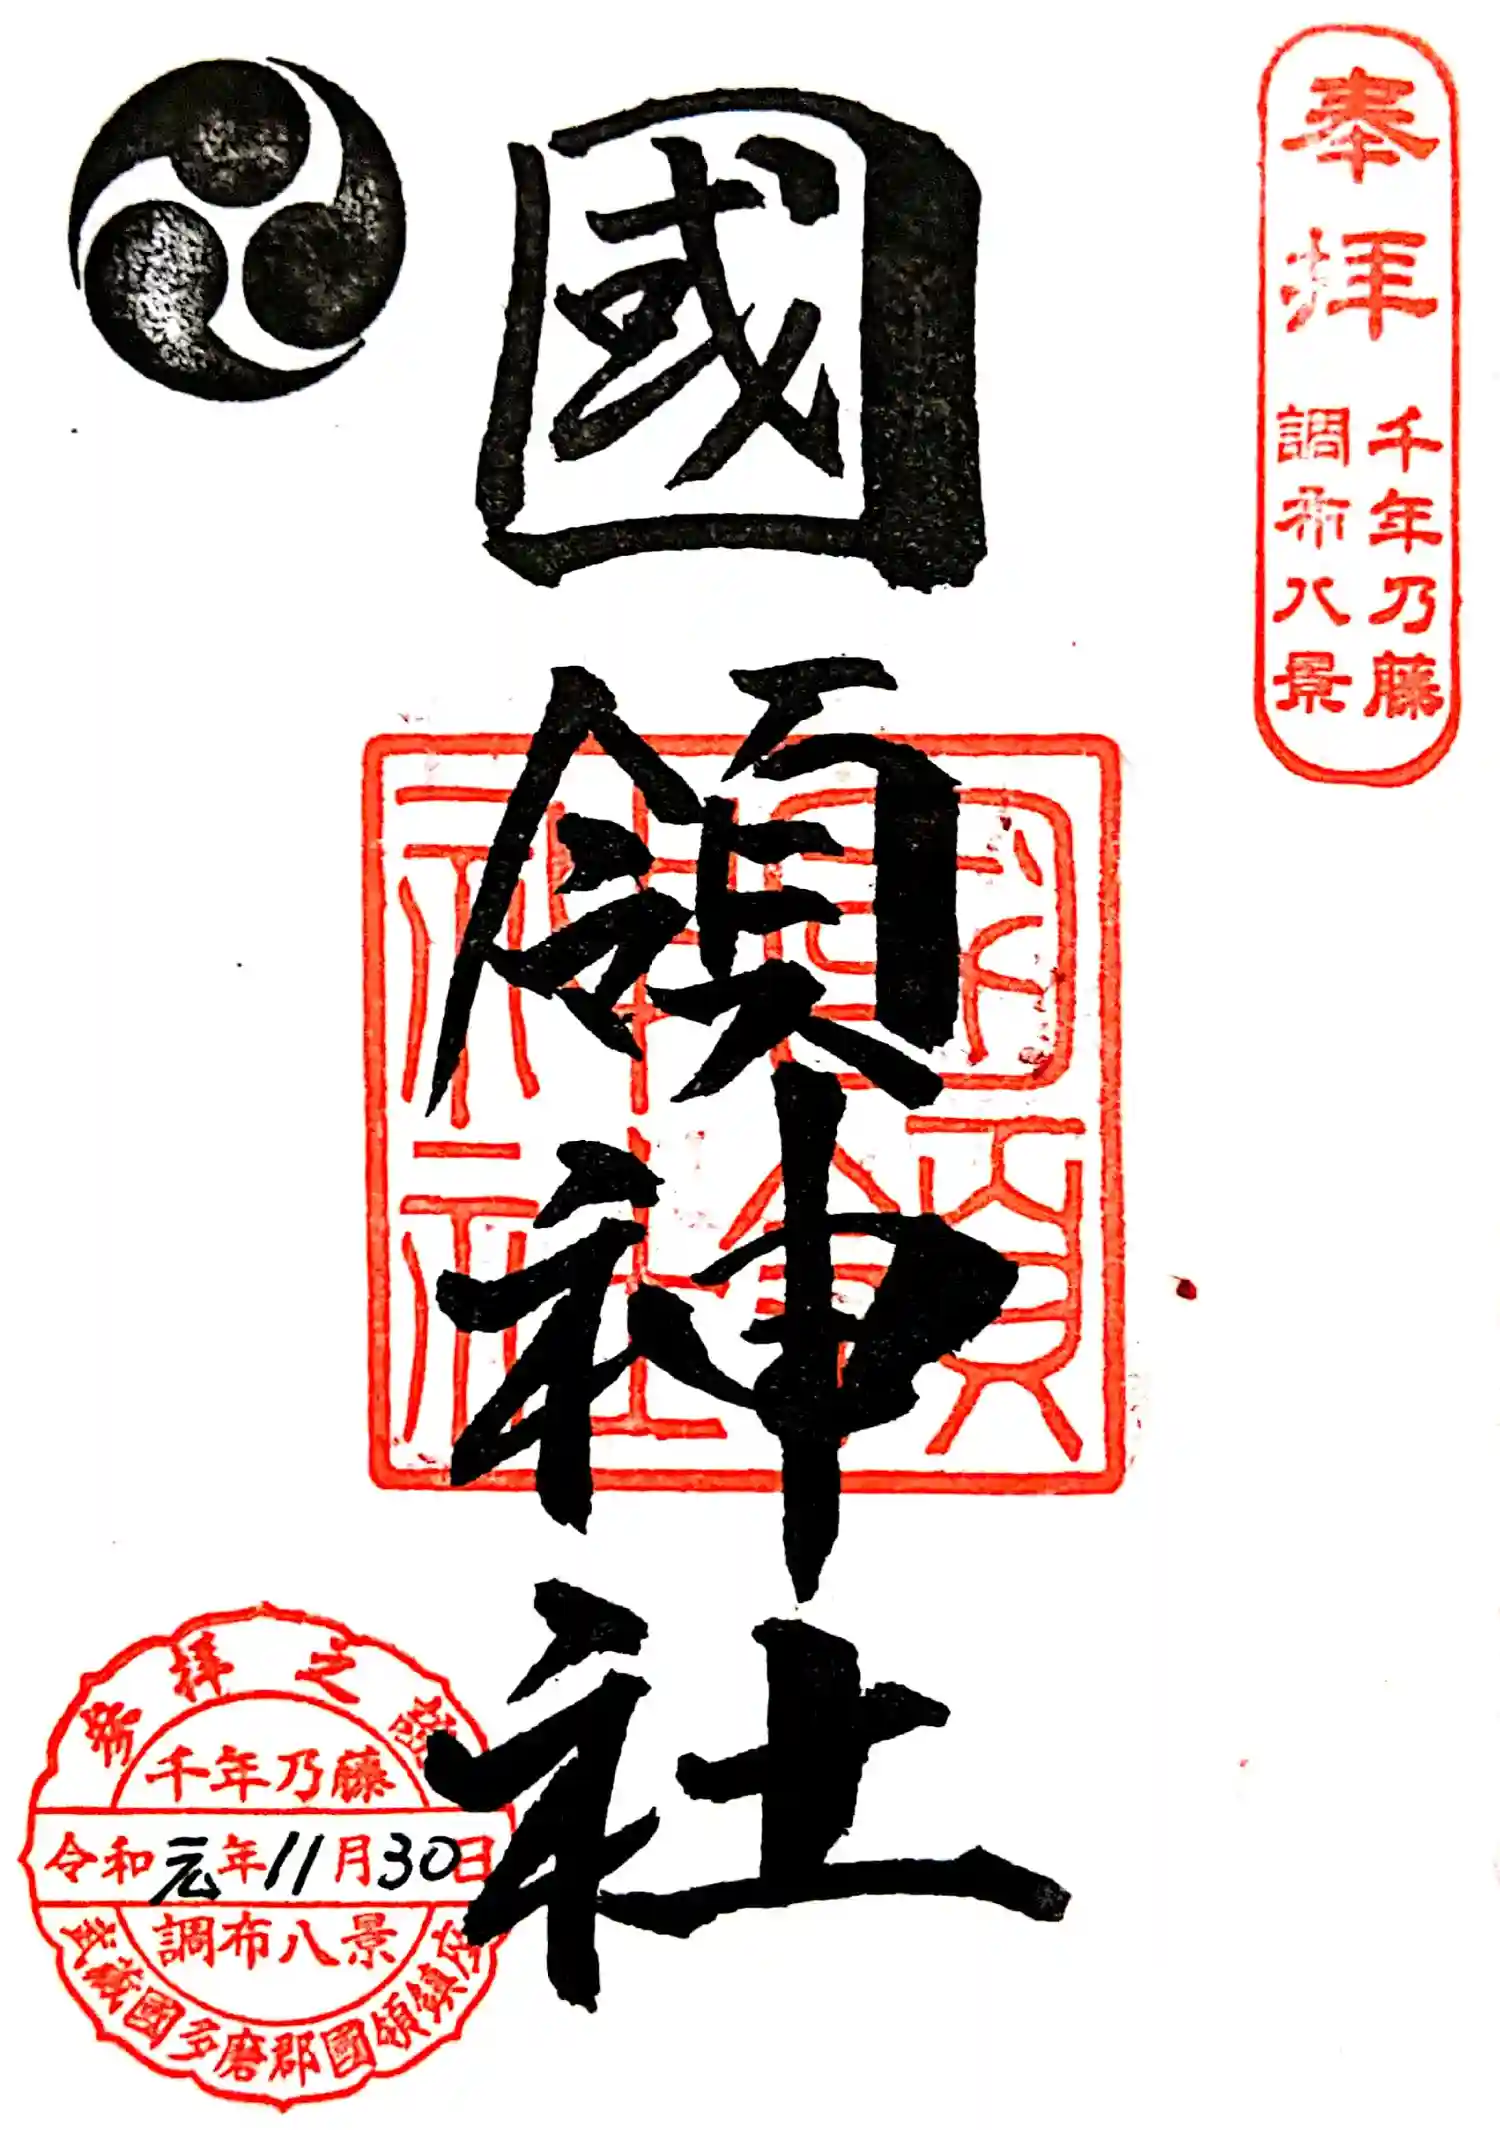 奉拝
千年乃藤
調布八景
國領神社
國領神社
参拝之證
千年乃藤
令和元年11月30日
調布八景
武蔵國多磨郡國領鎮座